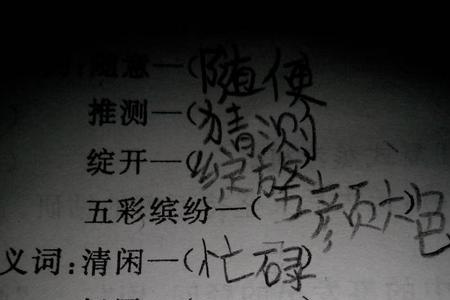 词:随意—(随便)
推测—(猜测)
绽开—(绽放)
五彩缤纷—(五颜六色)
义词:清闲—(忙碌)